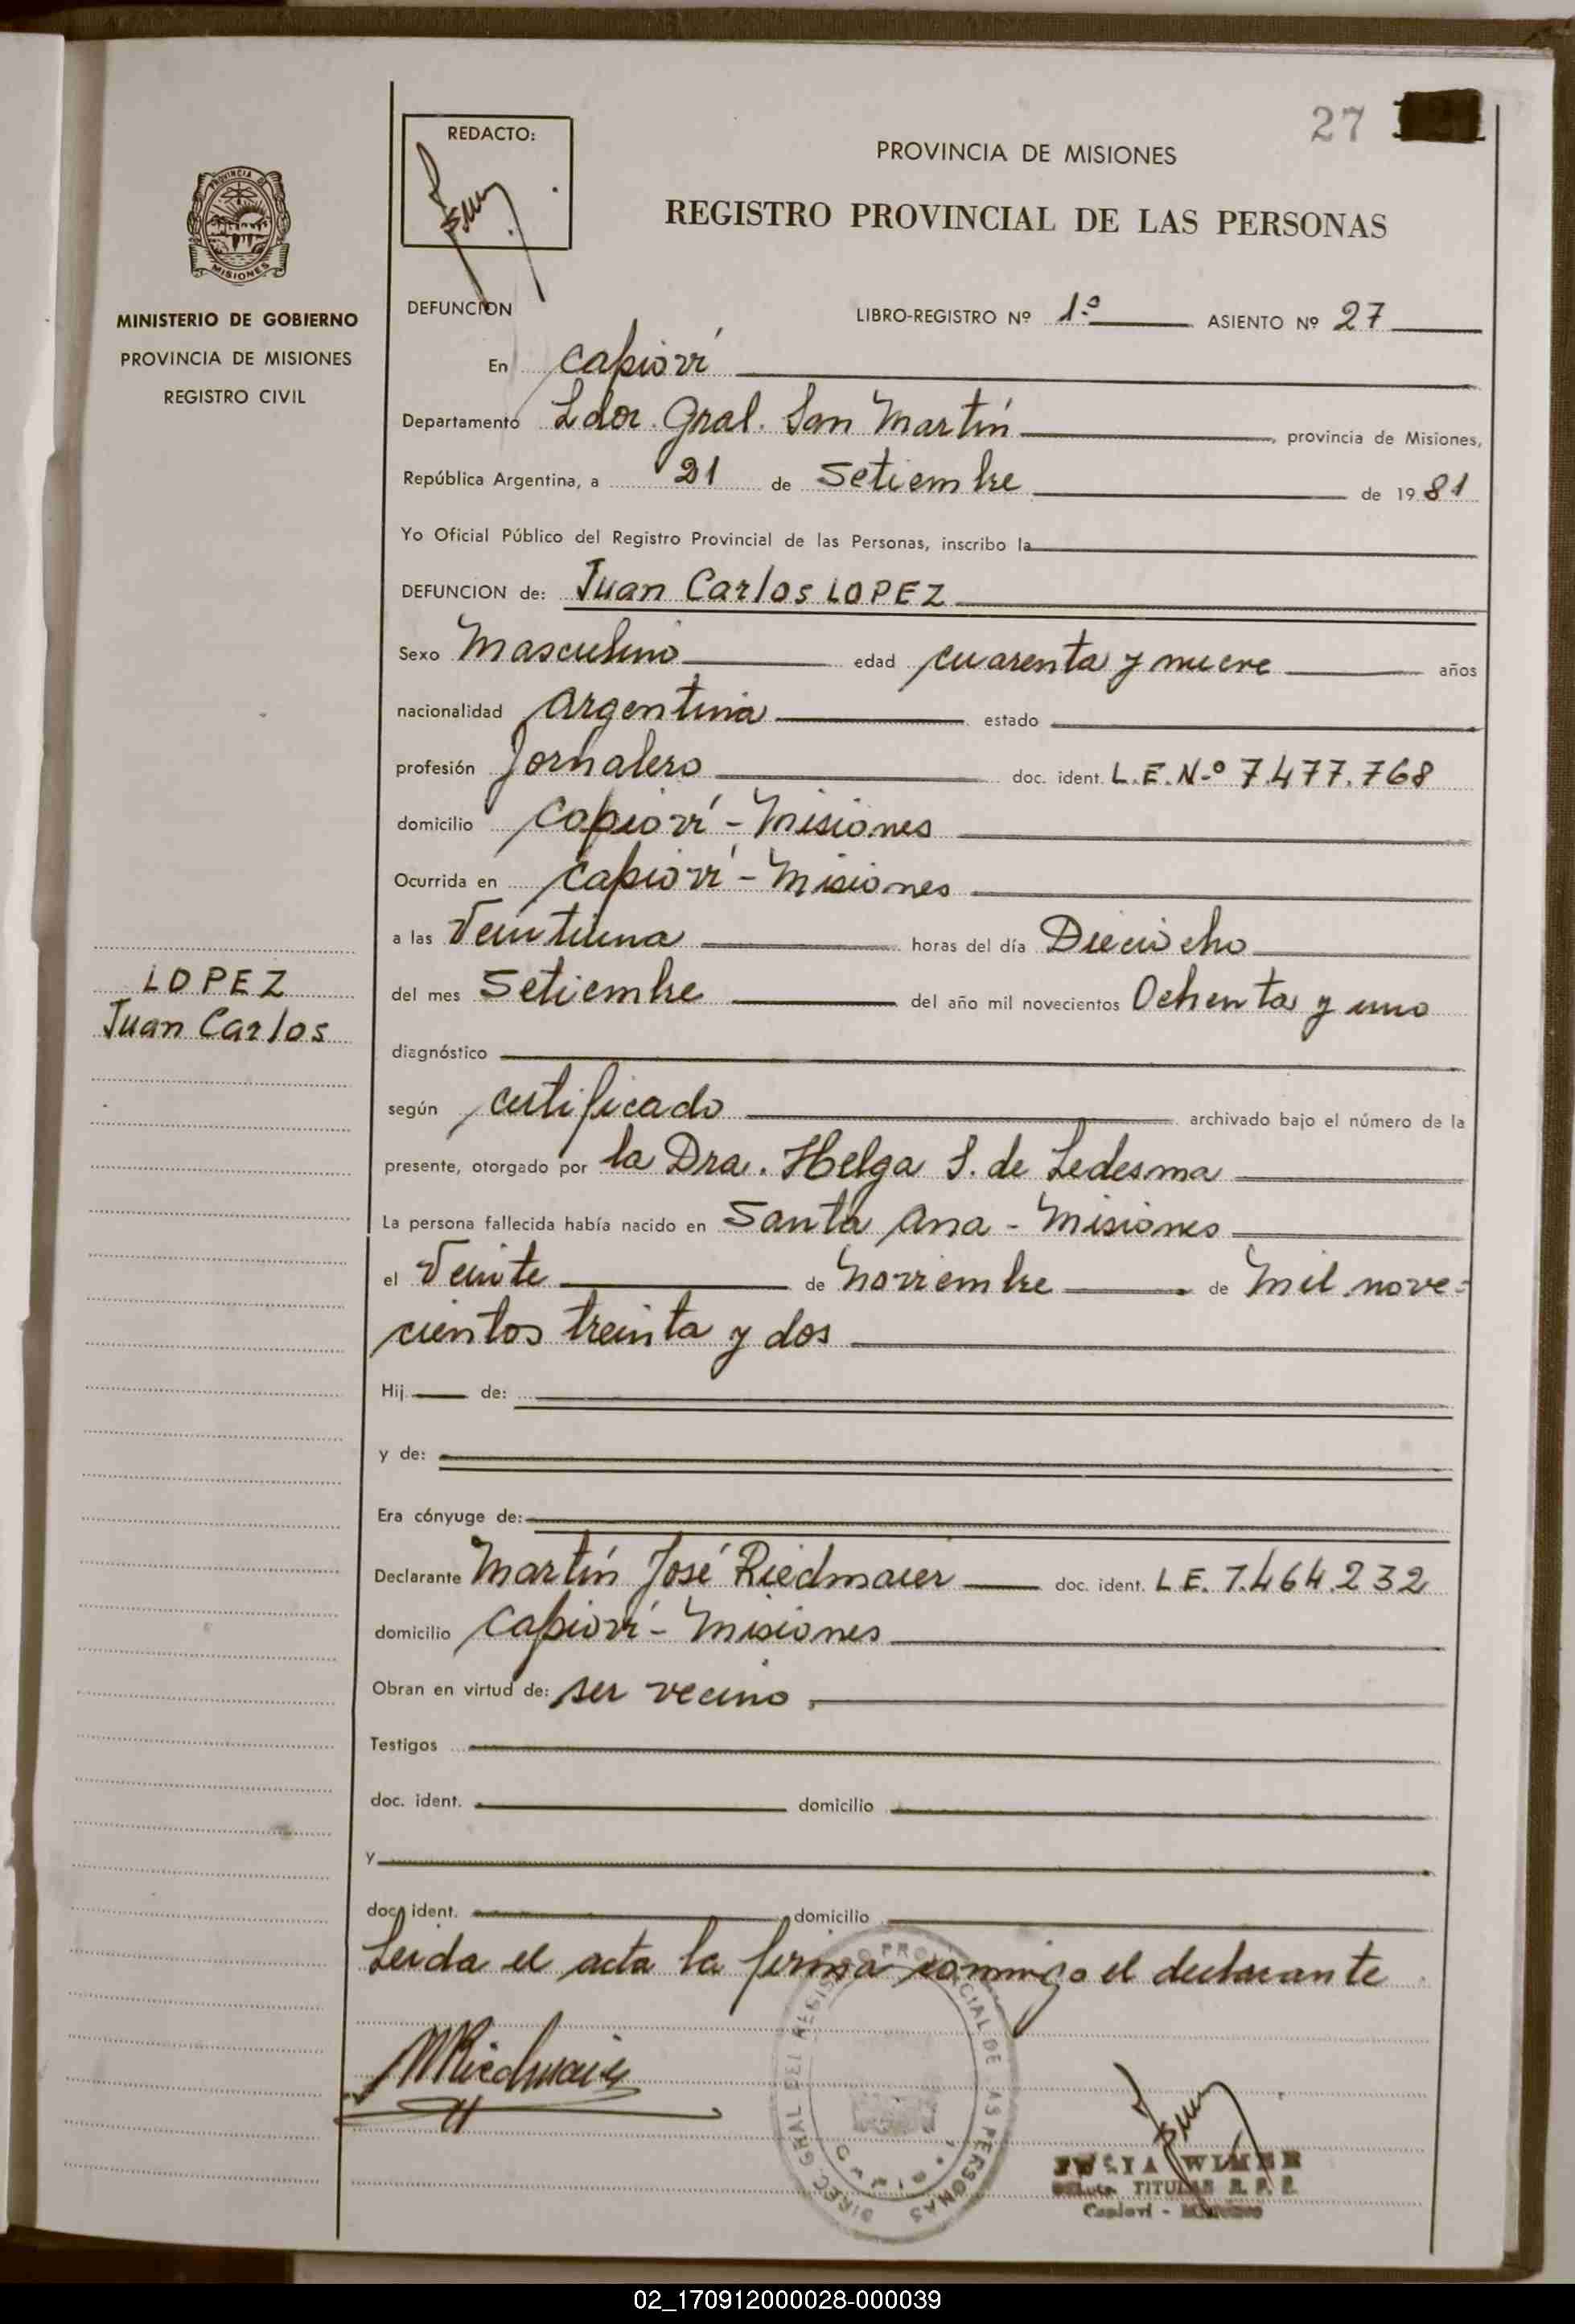 27
REDACTO:
PROVINCIA DE MISIONES
REGISTRO PROVINCIAL DE LAS PERSONAS
PROVINCIA D
MISIONES
MINISTERIO DE GOBIERNO
PROVINCIA DE MISIONES
REGISTRO CIVIL
DEFUNCION LIBRO-REGISTRO Nº 1.º ASIENTO Nº 27
En Capioví
Departamento Ldor. Gral. San Martín, provincia de Misiones,
República Argentina, a 21 de Setiembre de 1981
Yo Oficial Público del Registro Provincial de las Personas, inscribo la
DEFUNCION de: Juan Carlos LOPEZ
Sexo Masculino edad cuarenta y nueve años
nacionalidad Argentina estado
profesión Jornalero doc. ident. L.E.N.º 7.477.768
domicilio Capioví - Misiones
Ocurrida en Capioví - Misiones
a las Veintiuna horas del día Dieciocho
del mes Setiembre del año mil novecientos Ochenta y uno
LOPEZ
Juan Carlos
diagnóstico
según certificado archivado bajo el número de la
presente, otorgado por la Dra. Helga S. de Ledesma
La persona fallecida había nacido en Santa Ana - Misiones
el Veinte de Noviembre de Mil nove=
cientos treinta y dos
Hij de:
y de:
Era cónyuge de:
Declarante Martín José Riedmaier doc. ident. L.E. 7.464.232
domicilio Capioví - Misiones
Obran en virtud de: ser vecino,
Testigos
doc. ident. domicilio
y
doc. ident. domicilio
Leida el acta la firma conmigo el declarante
MRiedmaier
DIREC. GRAL DEL REGISTRO PROVINCIAL DE LAS PERSONAS
WIMER
TITULAR R. P. P.
Capiovi - Misiones
02_170912000028-000039